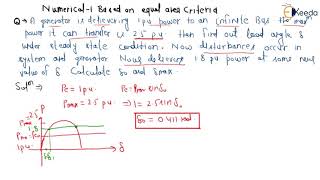 Numerical-1 Based on equal area Criteria
Ekeeda
Q → A generator is delivering 1 pu power to an infinite Bus the max
power it can transfer is 2.5 pu. then find out load angle δ
under steady state condition. Now disturbances occur in
system and generator Now delivers 1.8 pu power at some new
value of δ Calculate δ0 and δmax -
Solⁿ → Pe = 1 pu. Pe = Pmax sinδ0
Pmax = 2.5 pu ⇒ 1 = 2.5 sinδ0
δ0 = 0.411 rad
P
Pmax 2.5
1.8
1 pu
δ0
δ